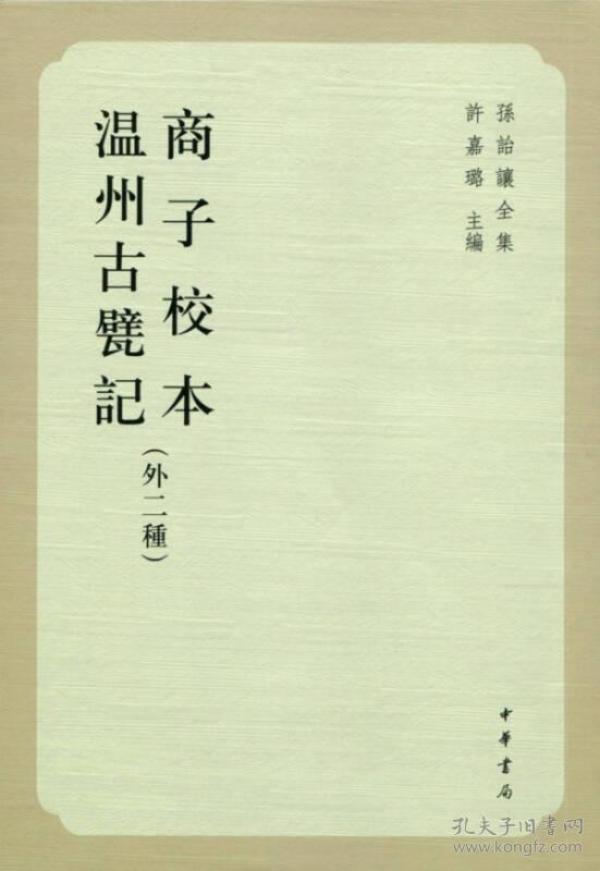 孫詒讓全集
許嘉璐 主編
商子校本
温州古甓記
(外二種)
中華書局
孔夫子旧書网
www.kongfz.com